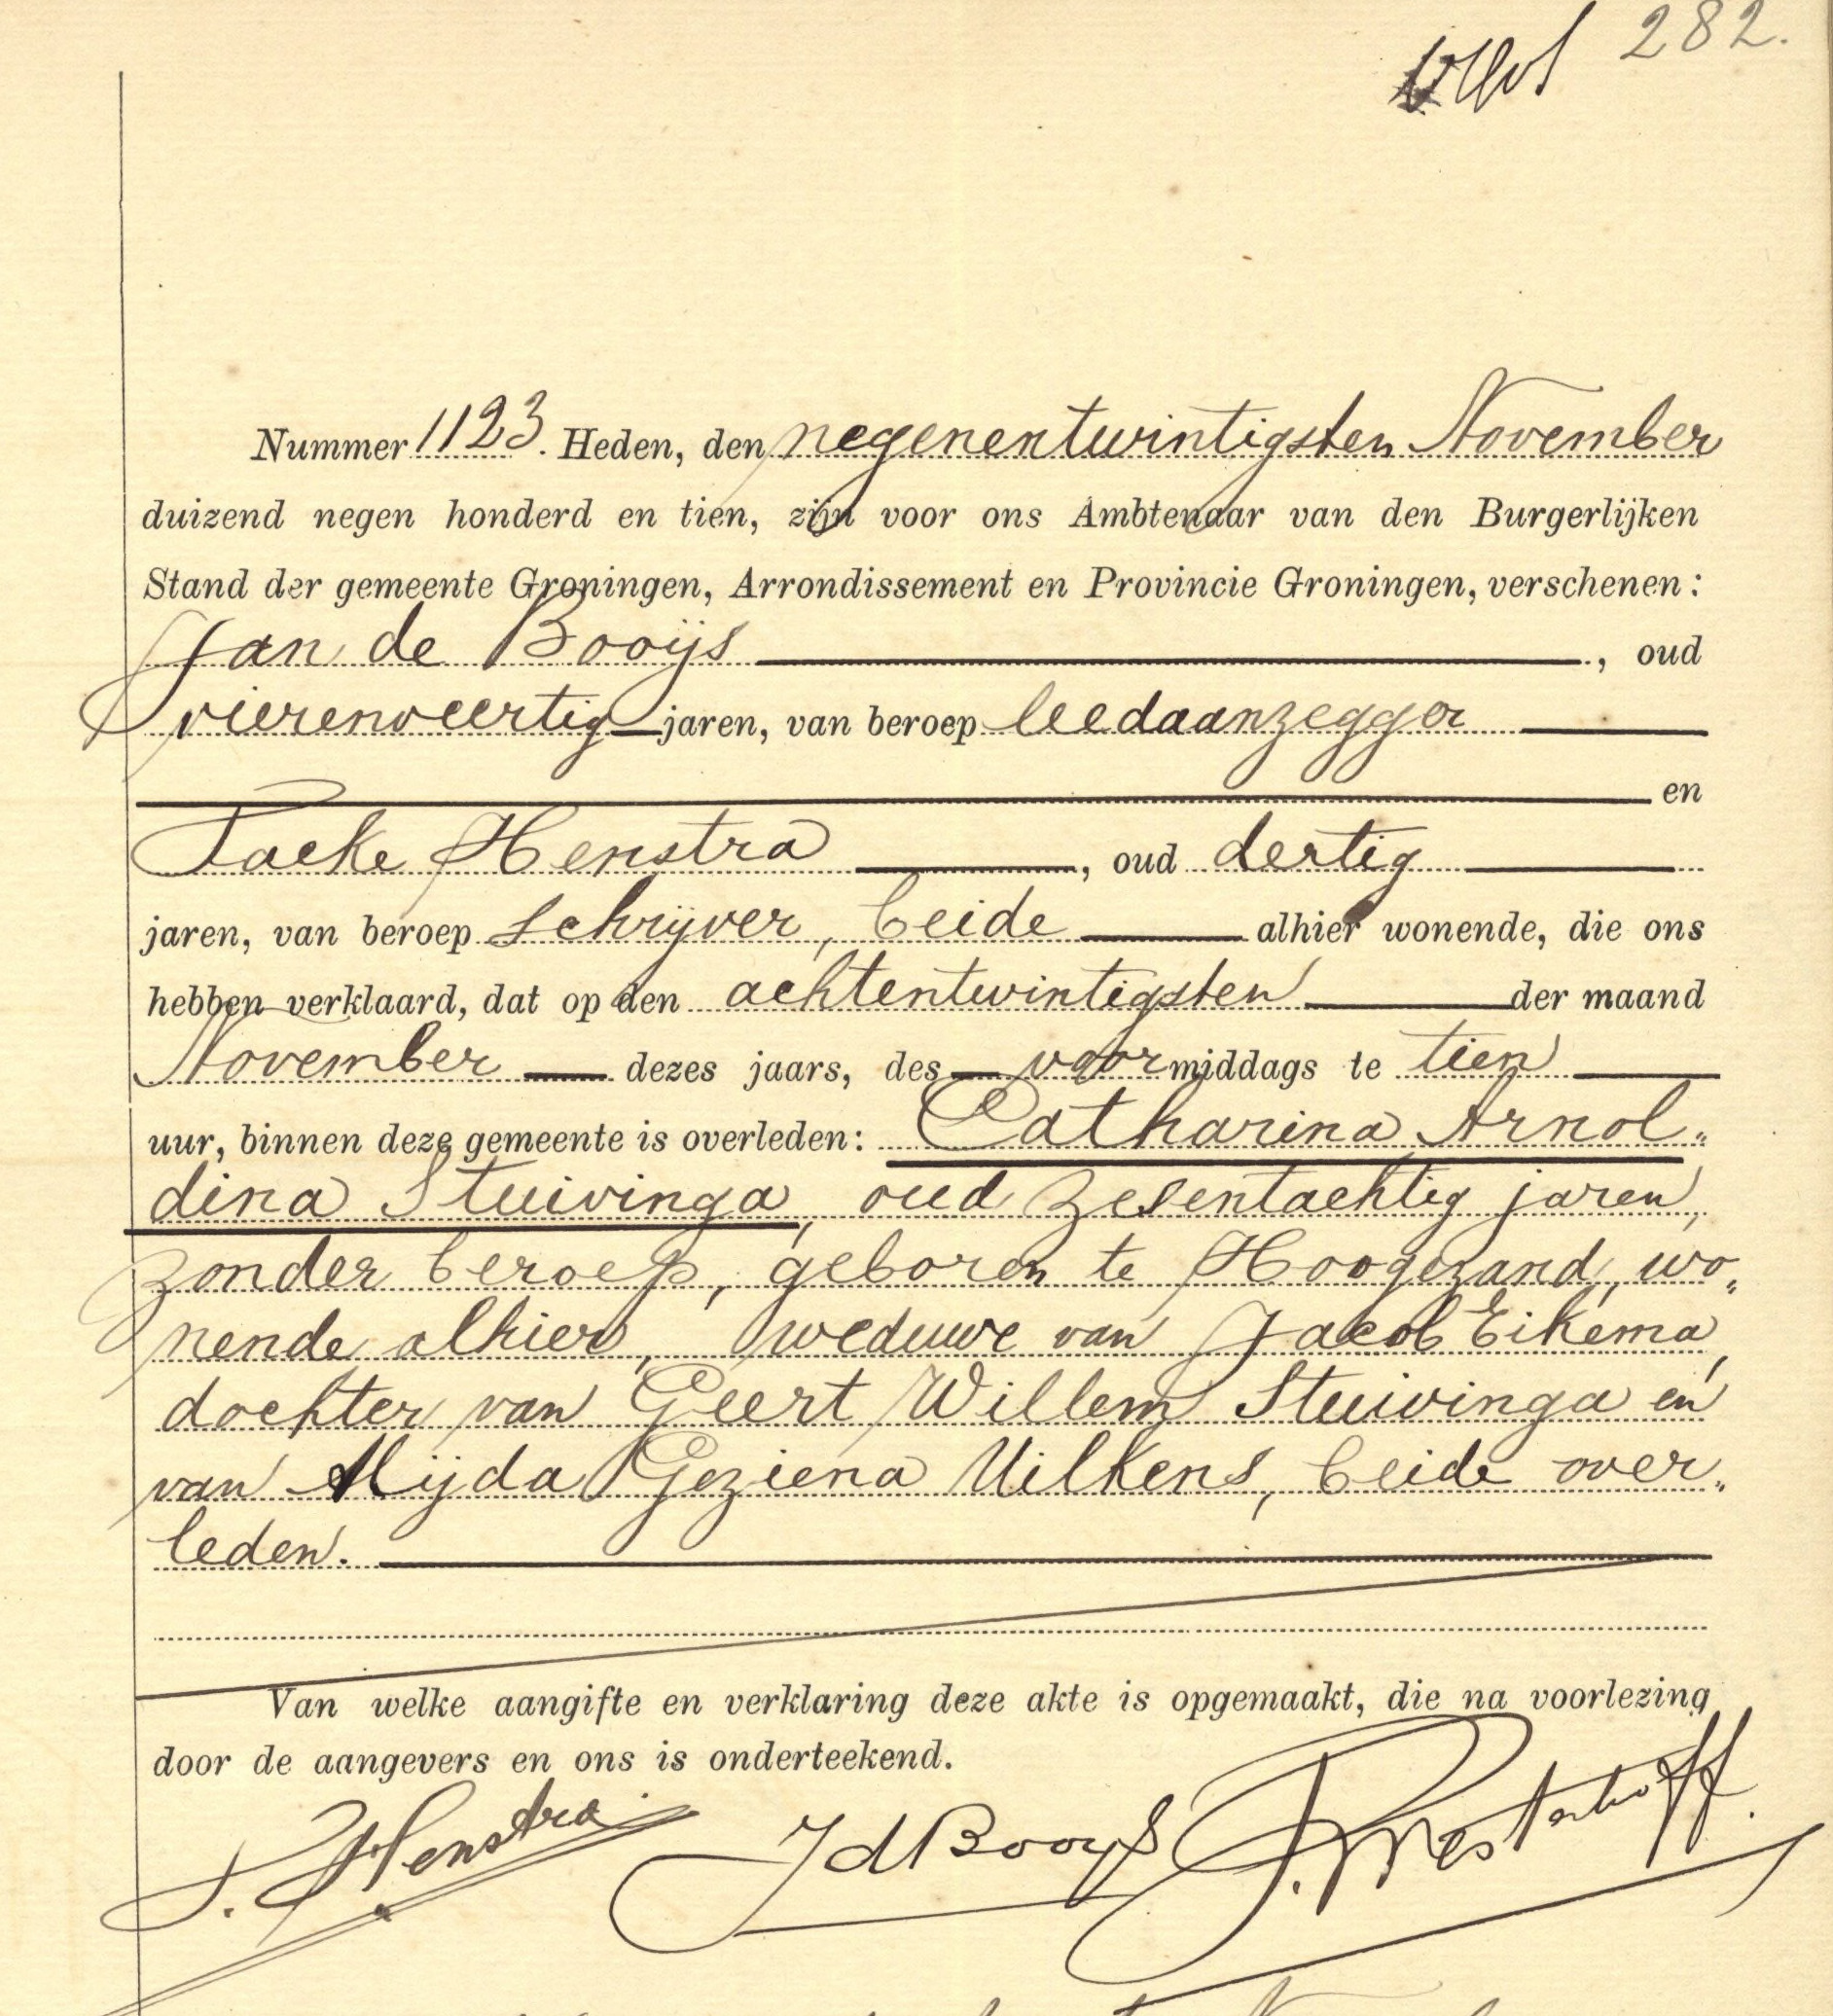 282.
Nummer 1123. Heden, den negenentwintigsten November
duizend negen honderd en tien, zijn voor ons Ambtenaar van den Burgerlijken
Stand der gemeente Groningen, Arrondissement en Provincie Groningen, verschenen:
Jan de Booijs, oud
vierenveertig jaren, van beroep leedaanzegger
en
Tacke Henstra, oud dertig
jaren, van beroep schrijver, beide alhier wonende, die ons
hebben verklaard, dat op den achtentwintigsten der maand
November dezes jaars, des voormiddags te tien
uur, binnen deze gemeente is overleden: Catharina Arnol„
dina Stuivinga, oud zesentachtig jaren,
zonder beroep, geboren te Hoogezand, wo„
nende alhier, weduwe van Jacob Eikema,
dochter van Geert Willem Stuivinga en
van Alijda Geziena Uilkens, beide over„
leden.
Van welke aangifte en verklaring deze akte is opgemaakt, die na voorlezing
door de aangevers en ons is onderteekend.
T. Henstra JdBooys P. Westerhoff.